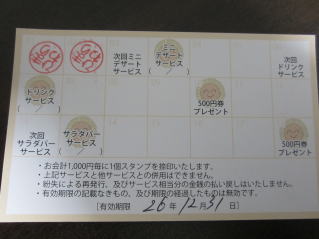 次回ミニ
デザート
サービス
ミニ
デザート
サービス
( / )
次回
ドリンク
サービス
ドリンク
サービス
( / )
500円券
プレゼント
次回
サラダバー
サービス
サラダバー
サービス
( / )
500円券
プレゼント
・お会計1,000円毎に1個スタンプを捺印いたします。
・上記サービスと他サービスとの併用はできません。
・紛失による再発行、及びサービス相当分の金銭の払い戻しはいたしません。
・有効期限の記載なきもの、及び期限の経過したものは無効です。
[有効期限 26年12月31日]